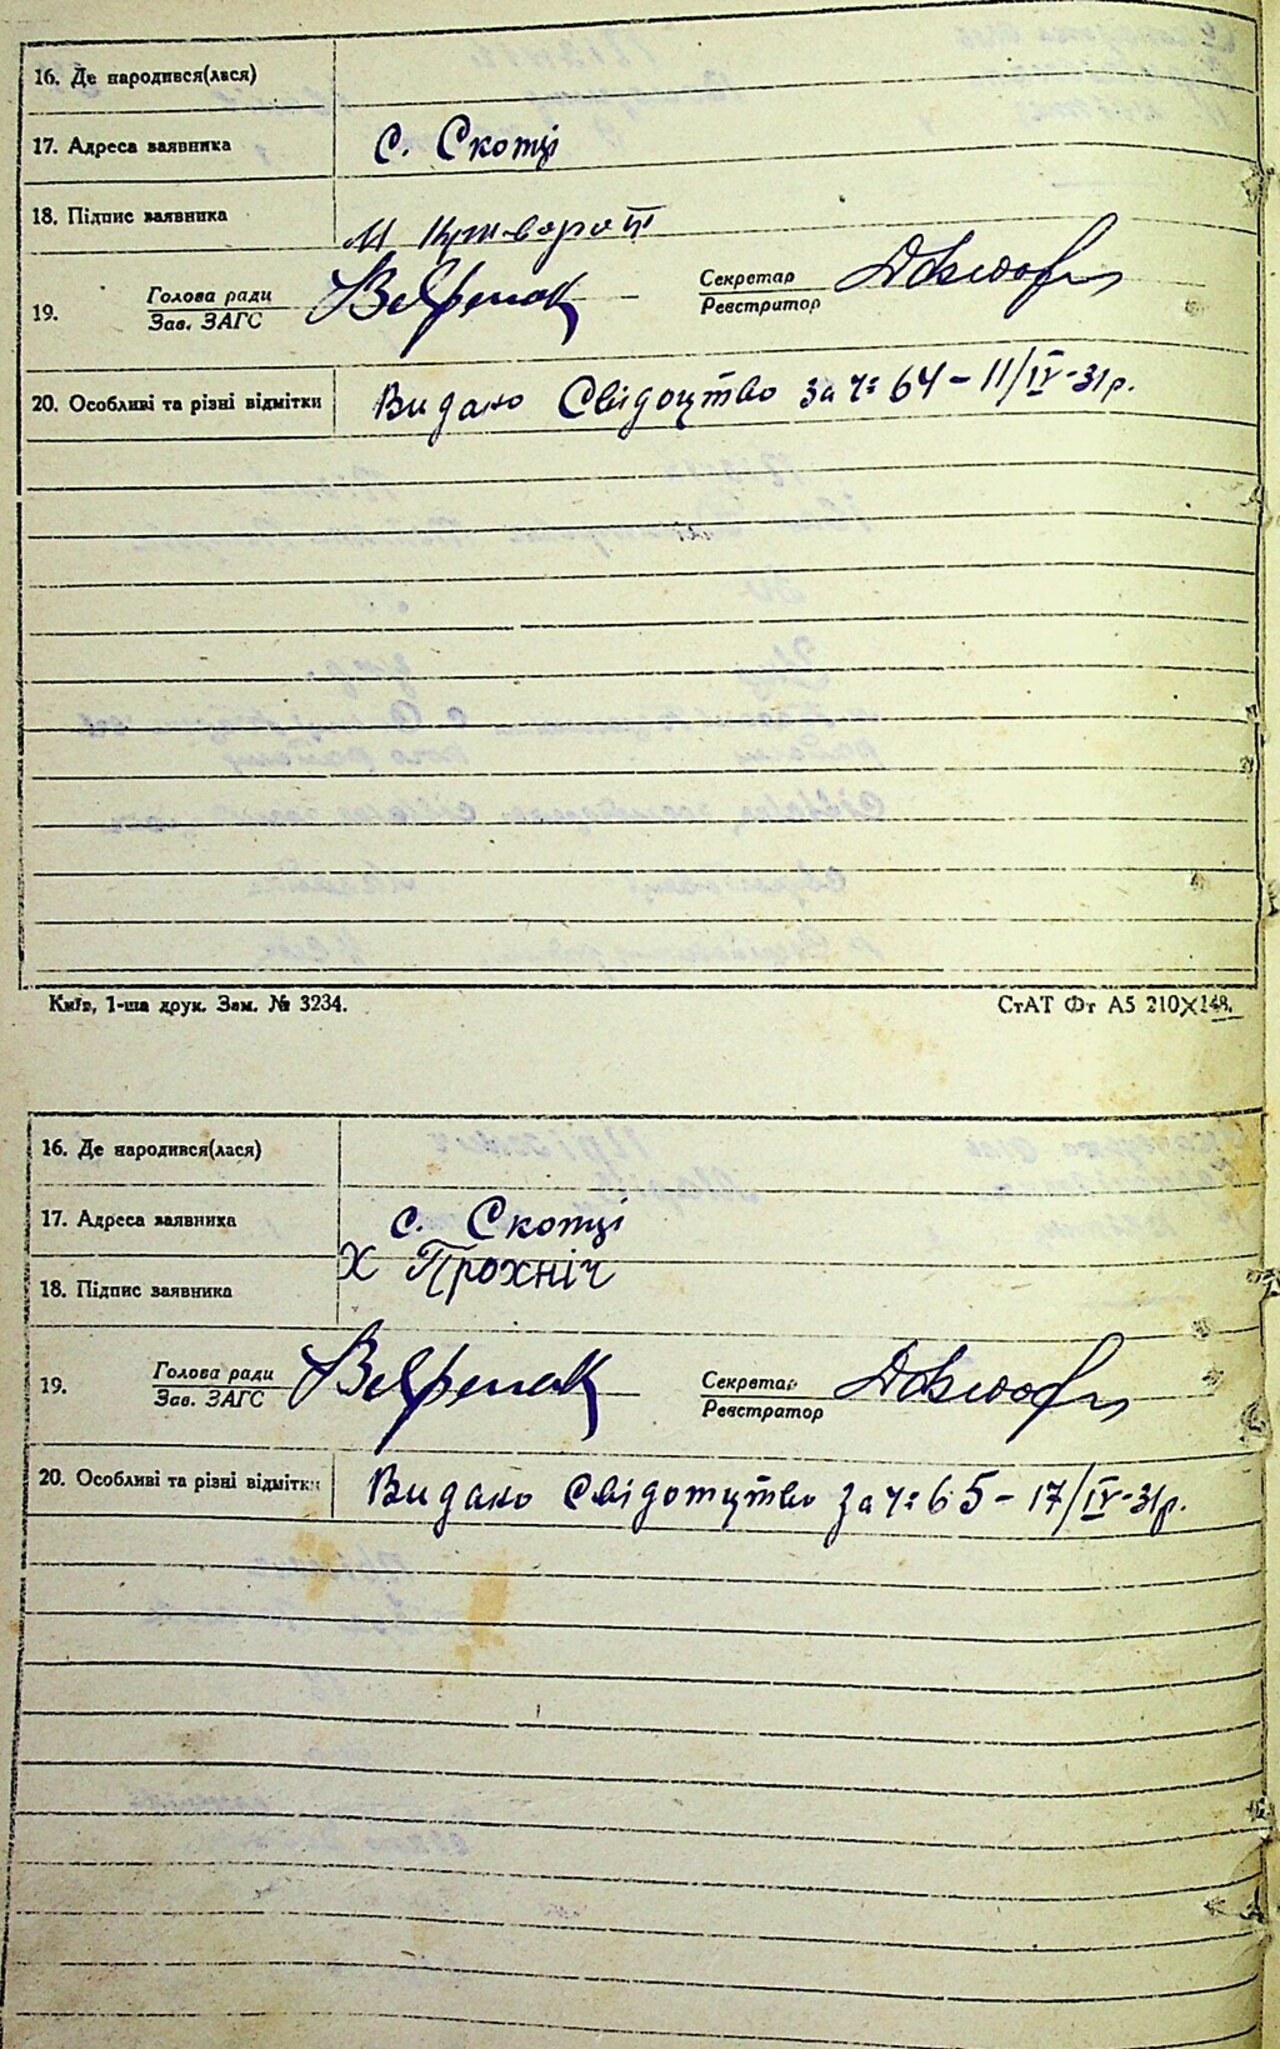 16. Де народився(лася)
17. Адреса заявника с. Скотці
18. Підпис заявника М
19. Голова ради Секретар
Зав. ЗАГС Реєстратор
20. Особливі та різні відмітки Видано Свідоцтво за ч: 64 - 11/IV-31р.
Київ, 1-ша друк. Зам. № 3234. СтАТ Фт А5 210X148.
16. Де народився(лася)
17. Адреса заявника с. Скотці
18. Підпис заявника Х Прохніч
19. Голова ради Секретар
Зав. ЗАГС Реєстратор
20. Особливі та різні відмітки Видано за ч: 65 - 17/IV-31р.